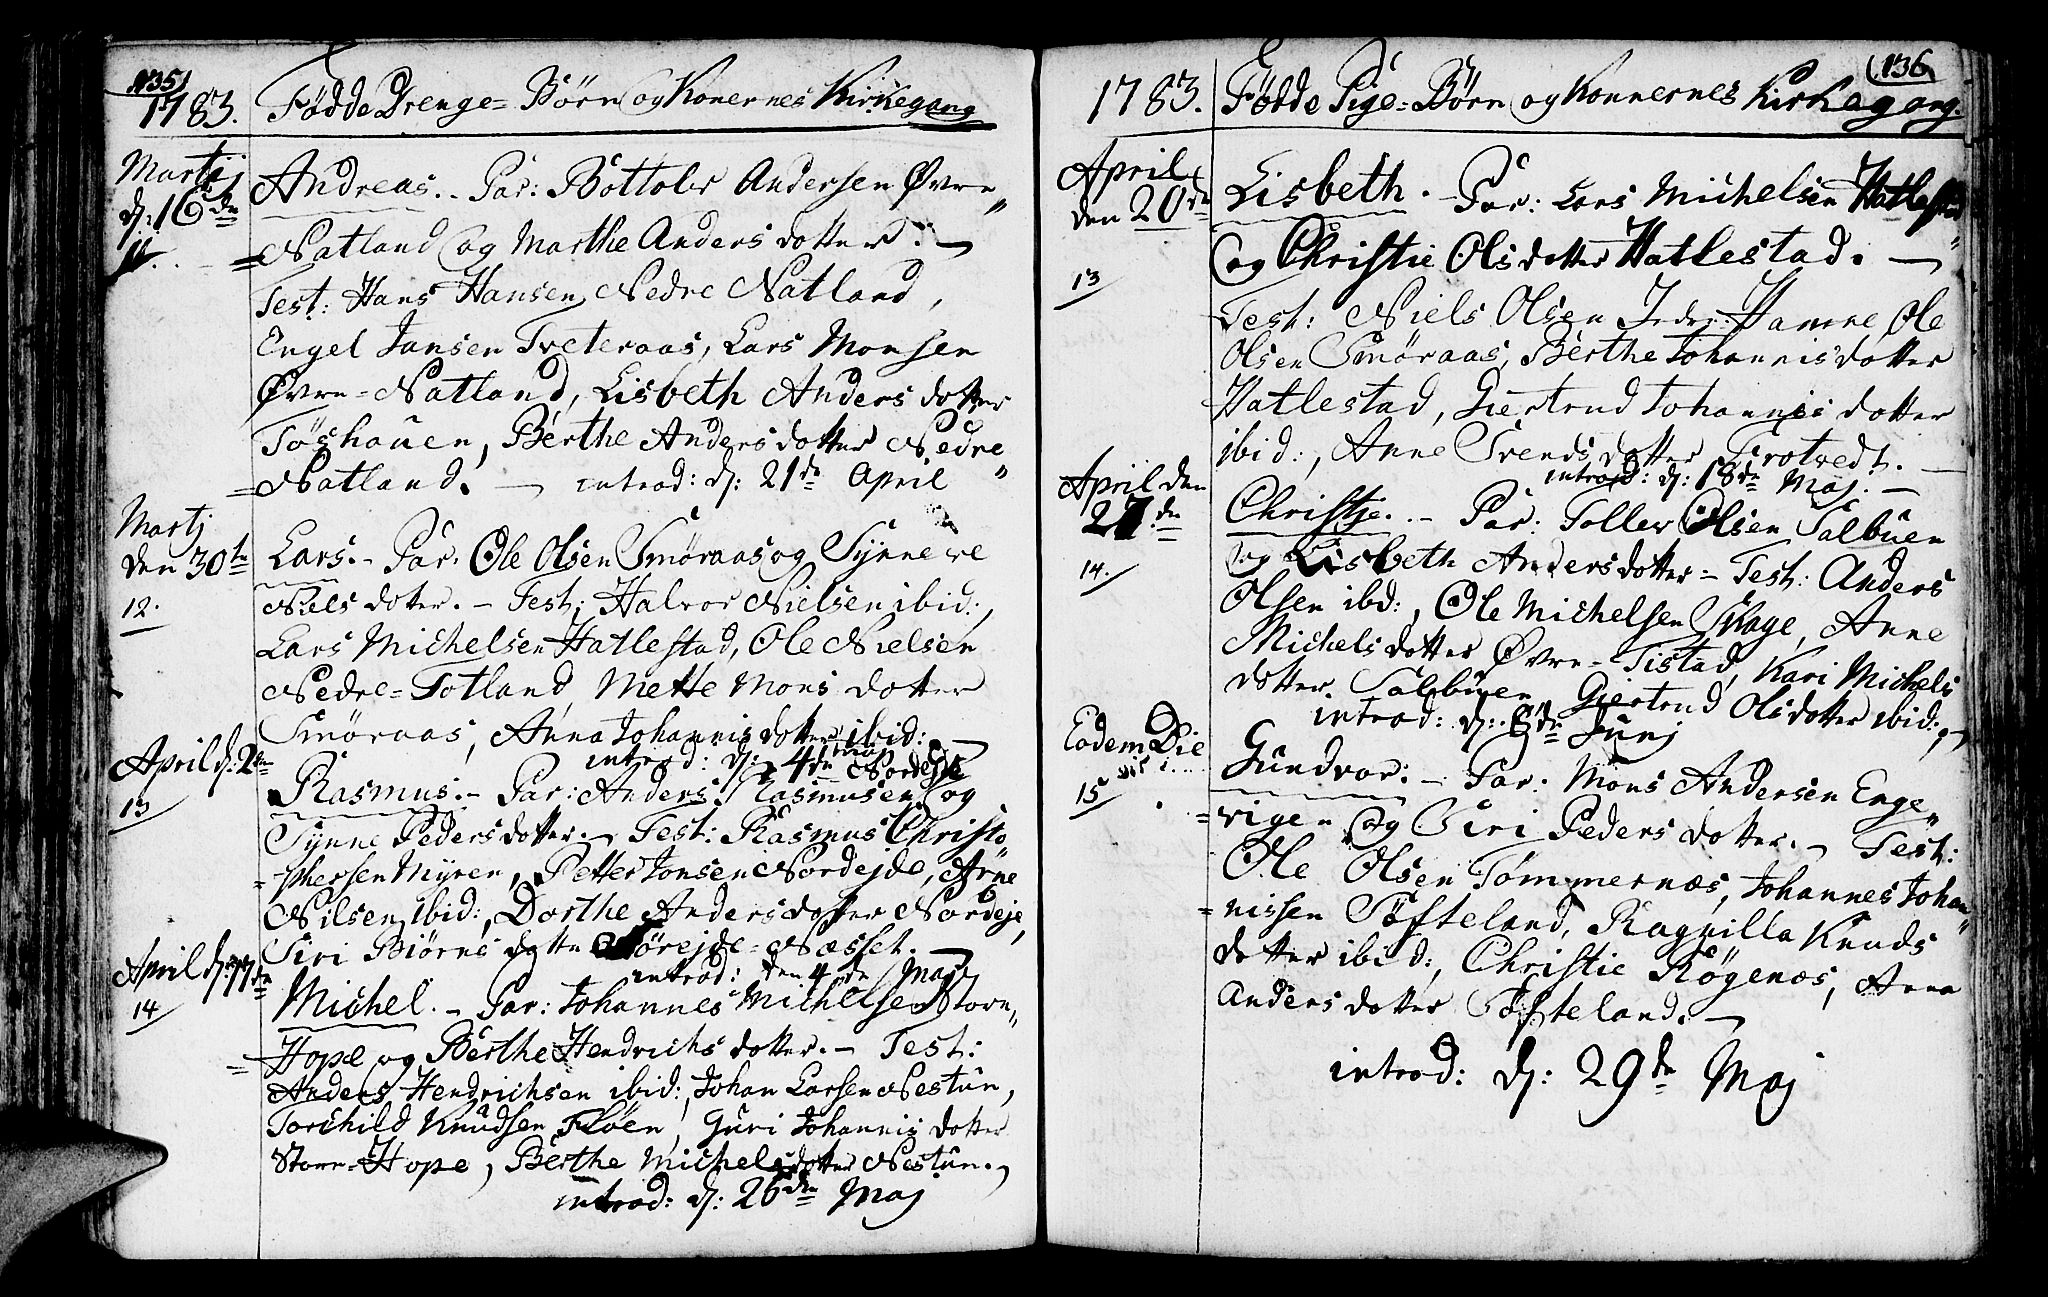 135
1783. Fødde Drenge-Børn og Konernes Kirkegang
Martij
d: 16de
11.
Andreas. Par: Bottolv Andersen Øvre=
=Natland og Marthe Anders dotter. —
Test: Hans Hansen Nedre Natland,
Engel Jansen Tveteraas, Lars Monsen
Øvre=Natland, Lisbeth Anders dotter
Tøshauen, Berthe Anders dotter Nedre
=Natland. — introd: d: 21de April
Martj
den 30te
12.
Lars. – Par. Ole Olsen Smøraas og Synneve
Niels dotter. – Test: Halvor Nielsen ibid:,
Lars Michelsen Hatlestad, Ole Nielsen
Nedre=Totland, Mette Mons dotter
Smøraas, Anna Johannis dotter ibid: —
introd: d: 4de Maj
April d: 2den
13
Rasmus. – Par: Anders Rasmusen Nordejde og
Synne Peders dotter. – Test: Rasmus Christo=
=phersen Myren, Petter Jonsen Nordejde, Arne
Nilsen ibid:, Dorthe Anders dotter Nordeje,
Siri Biørns dotter Sørejde=Næsset. —
introd: den 4de Maj
April d: 17de
14
Michel. – Par: Johannes Michelsen Store=
=Hope og Berthe Hendrichs dotter. – Test:
Anders Hendrichsen ibid:, Johan Larsen Nestun,
Torchild Knudsen Fløen, Guri Johannis dotter
Store=Hope, Berthe Michels dotter Nestun. –
introd: d: 26de Maj
136
1783. Fødde Pige=Børn og Konnernes Kirkegang.
April
den 20de
13
Lisbeth. – Par: Lars Michelsen Hatlestad
og Christie Ols dotter Hatlestad. —
Test: Niels Olsen Indre: Hamre, Ole
Olsen Smøraas, Berthe Johannis dotter
Hatlestad, Giertrud Johannis dotter
ibid:, Anne Svends dotter Trotvedt. —
introd: d: 18de Maj. —
April den
27de
14.
Christje. – Par: Tollev Olsen Salbuen
og Lisbeth Anders dotter – Test: Anders
Olsen ibd:, Ole Michelsen Skage, Anne
Michels dotter Øvre=Tistad, Kari Michels
dotter Salbuen, Giertrud Ols dotter ibid:, –
introd: d: 8de Junj
Eodem Die
15
Gundvor. – Par: Mons Andersen Enge=
=vigen og Siri Peders dotter. – Test:
Ole Olsen Tømmernæs, Johannes Johan=
=nissen Søfteland, Ragnilla Knuds
dotter ibid:, Christie Røgenæs, Anna
Anders dotter Søfteland. —
introd: d: 29de Maj